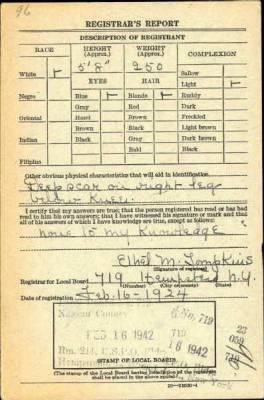 96
REGISTRAR'S REPORT
DESCRIPTION OF REGISTRANT
RACE HEIGHT (Approx.) WEIGHT (Approx.) COMPLEXION
5' 8" 250 Sallow
White Light
EYES HAIR Ruddy
Negro Blue Blonde Dark
Gray Red Freckled
Oriental Hazel Brown Light brown
Brown Black Dark brown
Indian Black Gray Black
Bald
Filipino
Other obvious physical characteristics that will aid in identification
Deep scar on right leg
below knee
I certify that my answers are true; that the person registered has read or has had
read to him his own answers; that I have witnessed his signature or mark and that
all of his answers of which I have knowledge are true, except as follows:
none to my knowledge
Ethel M. Tompkins
(Signature of registrar)
Registrar for Local Board 719 Hempstead N.Y.
(Number) (City or county) (State)
Date of registration Feb. 16 - 1924
Nassau County No. 719
FEB 16 1942
23
059
719
16 1942
(STAMP OF LOCAL BOARD)
(The stamp of the Local Board having jurisdiction of the registrant
shall be placed in the above space.)
New York